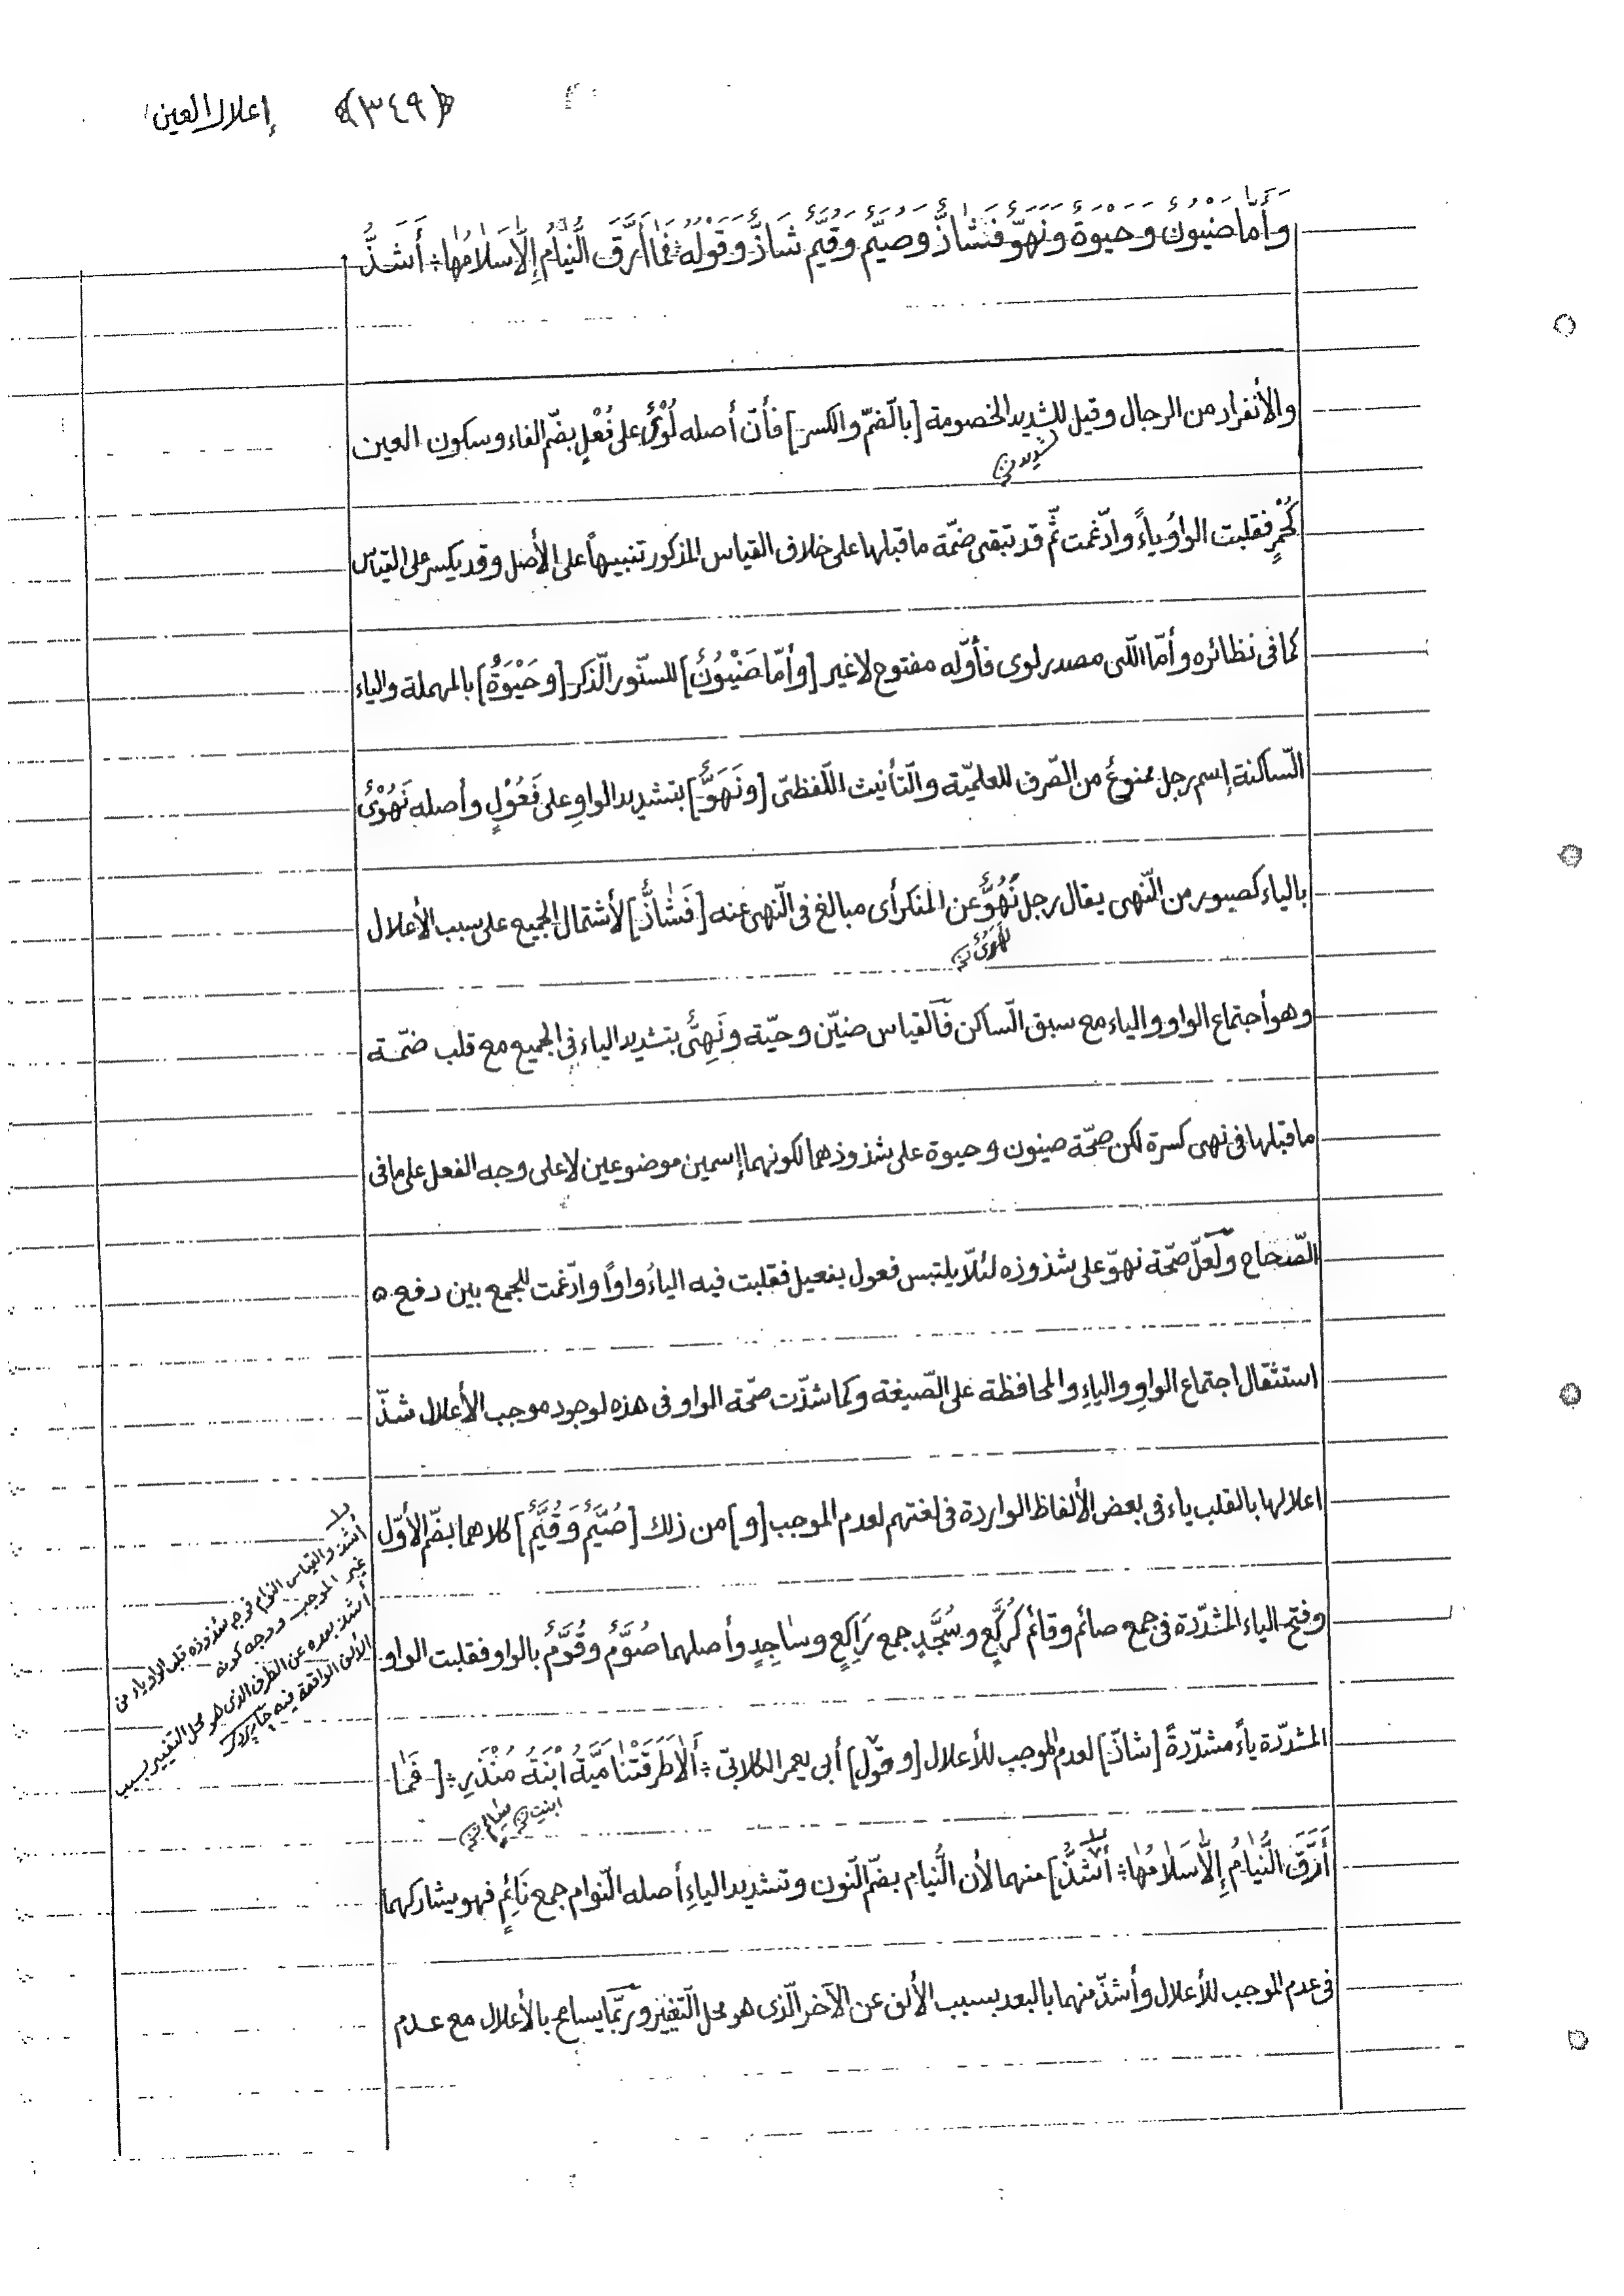 إعلال العين ﴿٣٤٩﴾
وَأَمَّا ضَيْوَنٌ وَحَيْوَةُ وَنَهُوٌّ فَشَاذٌّ وَصُيَّمٌ وَقُيَّمٌ شَاذٌّ وَقَوْلُهُ فَمَا أَرَّقَ النُّيَّامُ إِلَّا سَلَامُهَا ؛ أَشَذُّ
والأنفراد من الرجال وقيل للشديد الخصومة [بالضّمّ والكسر] فأنّ أصله لُوْىٌ على فُعْلٍ بضّم الفاء وسكون العين
شديد خ
كَحُمْرٍ فقلبت الواوُ ياءً وادّغمت ثمّ قد تبقى ضمّة ما قبلها على خلاف القياس المذكور تنبيهاً على الأصل وقد يكسر على القياس
كما فى نظائره وأمّا اللّى مصدر لوى فأوّله مفتوح لا غير [وأمّا ضَيْوَنٌ] للسنّور الذّكر [وحَيْوَةُ] بالمهملة والياء
السّاكنة إسم رجل ممنوعٌ من الصّرف للعلميّة والتّأنيث اللّفظىّ [ونَهُوٌّ] بتشديد الواوِ على فَعُوْلٍ وأصله نَهُوْىٌ
بالياء كصبور من النّهى يقال رجل نَهُوٌّ عن المنكر أى مبالغ فى النّهى عنه [فَشَاذٌّ] لأشتمال الجميع على سبب الأعلال
نَهُوىٌ خ
وهو أجتماع الواو والياء مع سبق السّاكن فالقياس ضيّن وحيّة ونَهِىٌّ بتشديد الياء فى الجميع مع قلب ضمّة
ما قبلها فى نهى كسرة لكن صحّة ضيون وحيوة على شذوذهما لكونهما إسمين موضوعين لا على وجه الفعل على ما فى
الصّحاح ولَعلّ صحّة نهوّ على شذوذه لئلّا يلتبس فعول بفعيل فقلبت فيه الياءُ واواً وادّغمت للجمع بين دفع
استثقال اجتماع الواوِ والياءِ والمحافظة على الصّيغة وكما شذّت صحّة الواو فى هذه لوجود موجب الأعلال شذّ
اعلالها بالقلب ياء فى بعض الألفاظ الواردة فى لغتهم لعدم الموجب [و] من ذلك [صُيَّمٌ وَقُيَّمٌ] كلاهما بضّم الأوّل
وفتح الياء المشدّدة فى جمع صائم وقائم كَرُكَّعٍ وسُجَّدٍ جمع رَاكِعٍ وسَاجِدٍ وأصلهما صُوَّمٌ وقُوَّمٌ بالواو فقلبت الواو
المشدّدة ياءً مشدّدةً [شاذّ] لعدم الموجب للأعلال [وقول] أبى يعمر الكلابىّ ؛ أَلَا طَرَقَتْنَا مَيَّةُ ابْنَةُ مُنْذِرٍ ؛ [فَمَا
ابنت خ سلام خ
أَرَّقَ النُّيَّامُ إِلَّا سَلَامُهَا ؛ أَشَذُّ] منهما لأن النُّيام بضّم النّون وتشديد الياءِ أصله النّوام جمع نَائِمٍ فهو يشاركهما
فى عدم الموجب للأعلال وأشذّ منهما بالبعد بسبب الألف عن الآخر الّذى هو محل التّغيّر وربّما يسامح بالأعلال مع عدم
أشذ والقياس النوام فوجه شذوذه قلب الواو ياء من
غير الموجب ووجه كونه
أشذ بعده عن الطرف الذى هو محل التغيير بسبب
الألف الواقعة فيه جاربردى